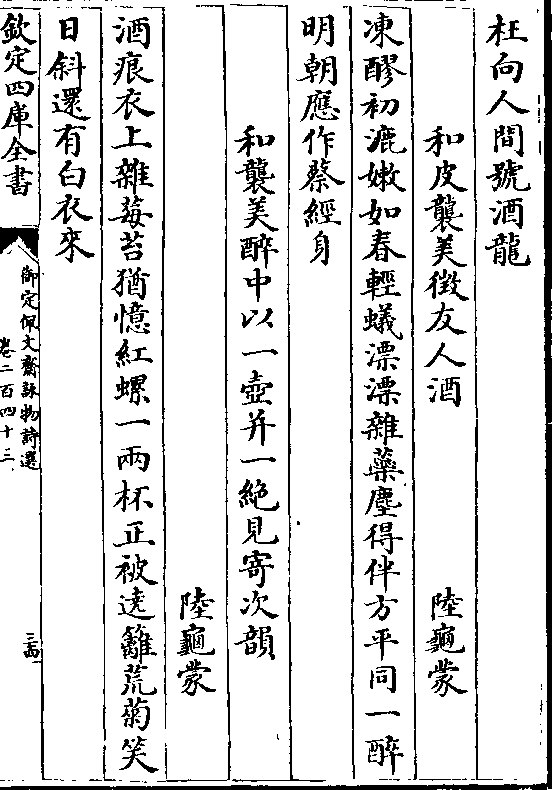 枉向人間號酒龍
和皮襲美徴友人酒　陸龜蒙
凍醪初漉嫩如春輕蟻漂漂雜蘂塵得伴方平同一醉
明朝應作蔡經身
和襲美醉中以一壺并一絶見寄次韻
陸龜蒙
酒痕衣上雜莓苔猶憶紅螺一兩杯正被遶籬荒菊笑
日斜還有白衣來
欽定四庫全書
御定佩文齋詠物詩選
卷二百四十三
三四